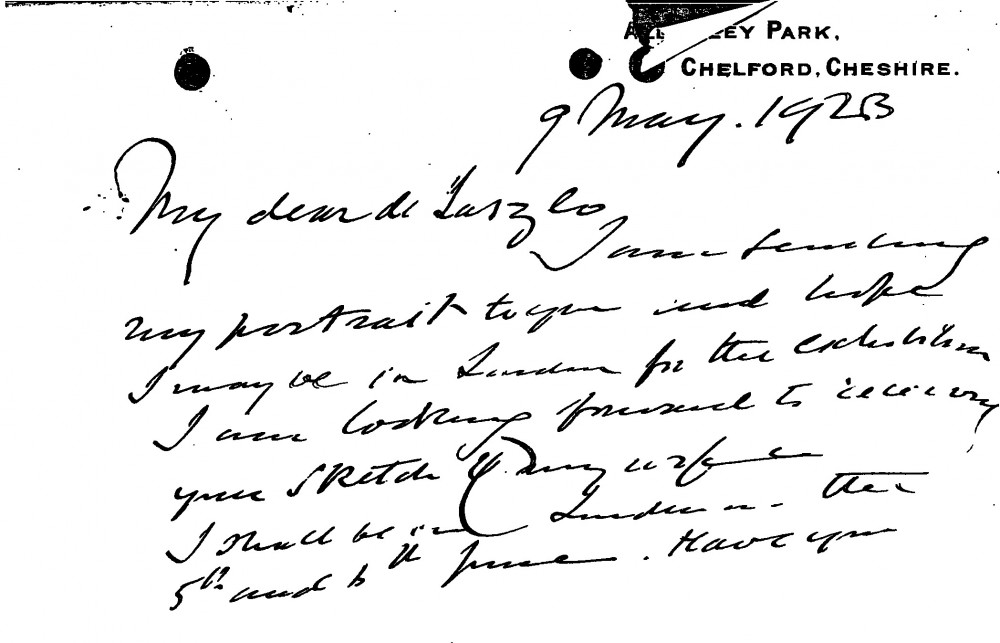 LEY PARK,
CHELFORD, CHESHIRE.
9 May. 1923
My dear de Laszlo
I am sending
my portrait to you and hope
I may be in London for the exhibition
I am looking forward to receiving
your sketch of my wife
I shall be in London on the
5th and 6th June. Have you